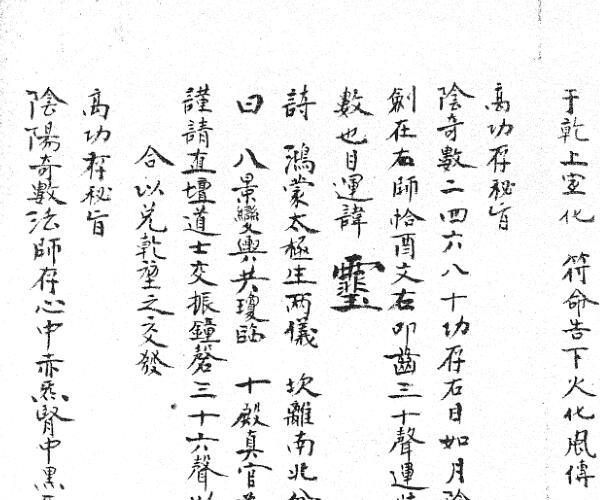 于乾上宣化 符命告下火化風傳
高功存秘旨
陰奇數二四六八十功存右目如月
劍在右師恰酉文右叩齒三十聲運
數也目運諱
詩 鴻蒙太極生兩儀 坎離南北
曰 八景鸞輿共瓊臨 十殿真官
謹請直壇道士交振鐘磬三十六聲以
合以兌乾堃之交發
高功存秘旨
陰陽奇數法師存心中赤炁腎中黑